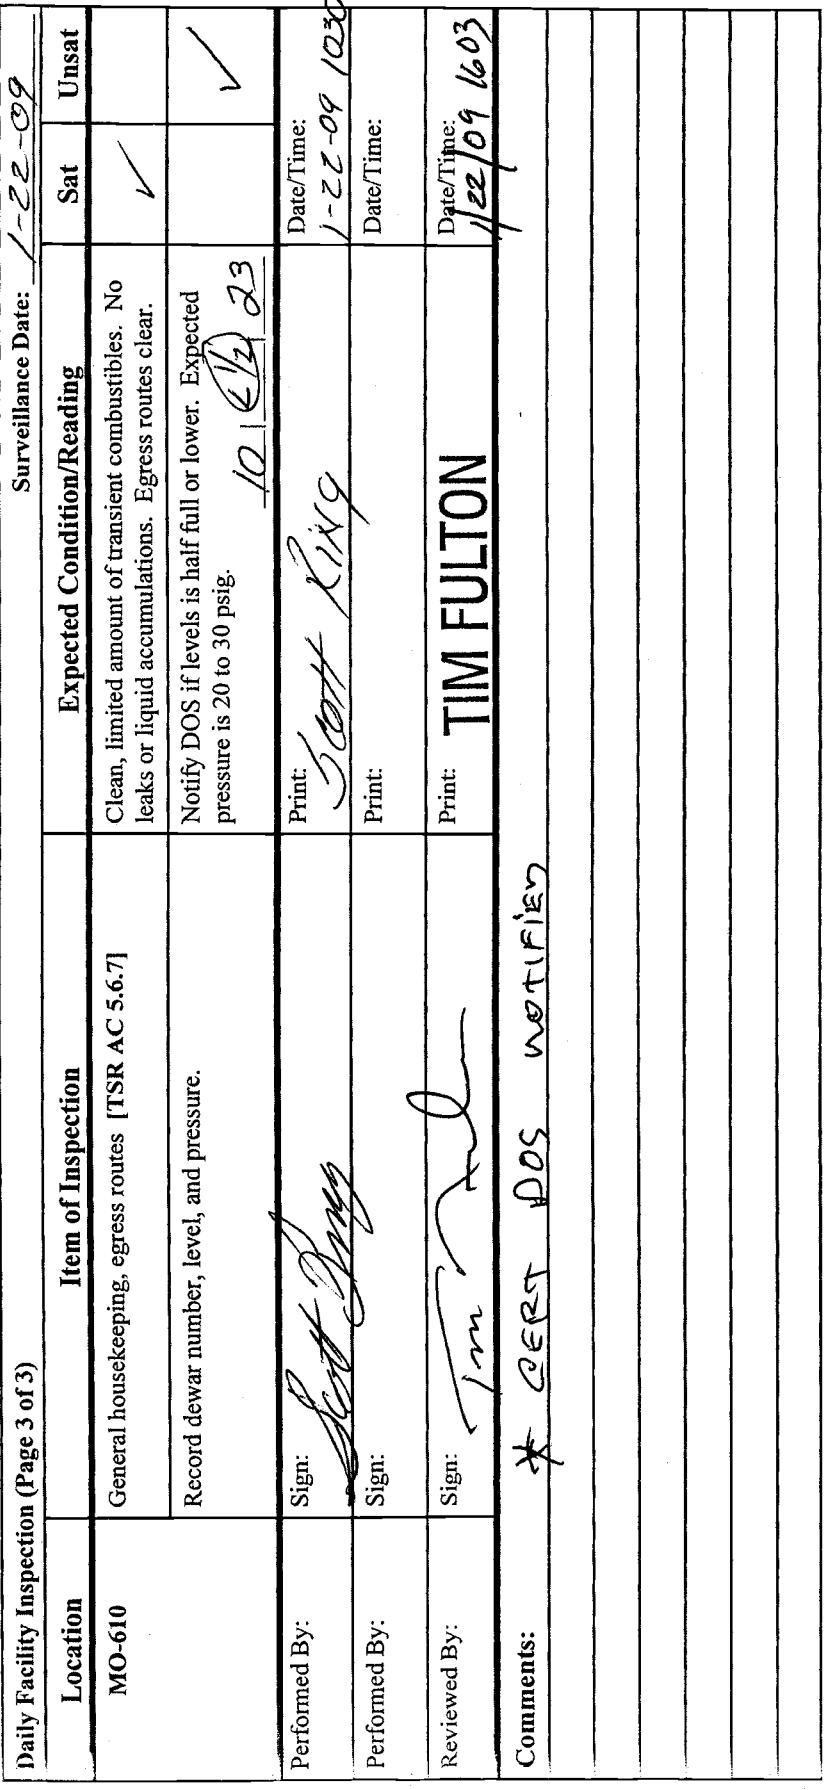 Daily Facility Inspection (Page 3 of 3)
Surveillance Date: 1-22-09
Location
Item of Inspection
Expected Condition/Reading
Sat
Unsat
MO-610
General housekeeping, egress routes [TSR AC 5.6.7]
Clean, limited amount of transient combustibles. No
leaks or liquid accumulations. Egress routes clear.
✓
Record dewar number, level, and pressure.
Notify DOS if levels is half full or lower. Expected
pressure is 20 to 30 psig.
10 | < 1/2 | 23
✓
Performed By:
Sign: Scott King
Print: Scott King
Date/Time:
1-22-09 1030
Performed By:
Sign:
Print:
Date/Time:
Reviewed By:
Sign: Tim
Print: TIM FULTON
Date/Time:
1/22/09 1603
Comments:
* CERT DOS NOTIFIED